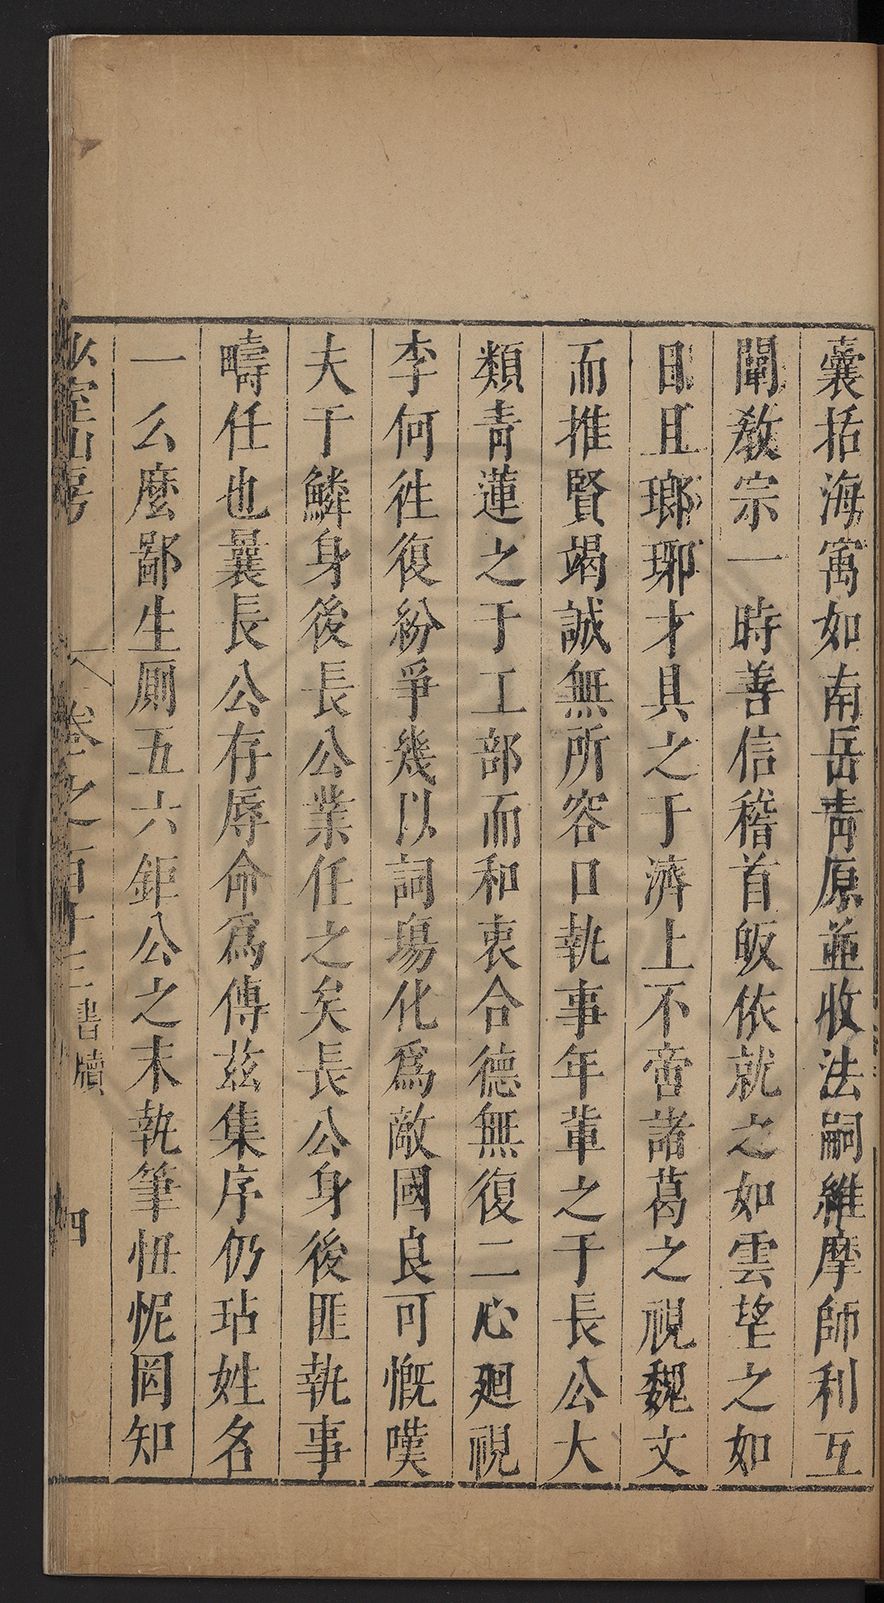 囊括海寓如南岳靑原並收法嗣維摩師利互
闡敎宗一時善信稽首皈依就之如雲望之如
日且瑯琊才具之于濟上不啻諸葛之視魏文
而推賢竭誠無所容口執事年輩之于長公大
類靑蓮之于工部而和衷合德無復二心廻視
李何徃復紛爭幾以詞塲化爲敵國良可慨嘆
夫于鱗身後長公業任之矣長公身後匪執事
疇任也曩長公存辱命爲傳兹集序仍玷姓名
一么麼鄙生厠五六鉅公之末執筆忸怩罔知
少室山房
卷之百十三書牘
四